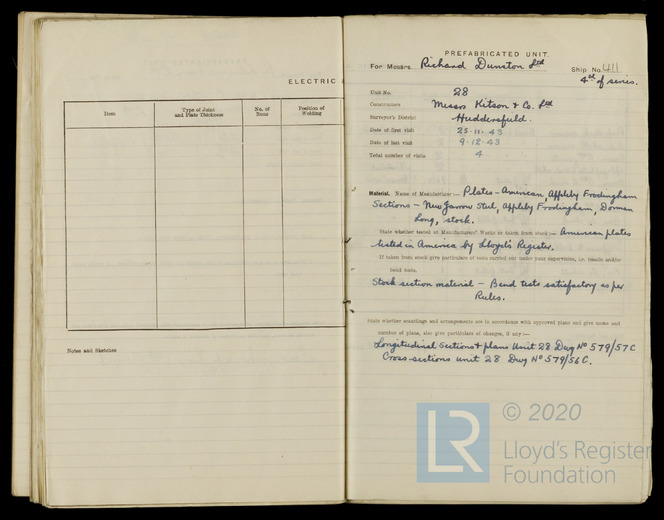 ELECTRIC
Item
Type of Joint and Plate Thickness
No. of Runs
Position of Welding
Notes and Sketches
PREFABRICATED UNIT.
For Messrs. Richard Dunston Ltd
Ship No. 411
4th of series.
Unit No. 28
Constructors Messrs Kitson & Co. Ltd
Surveyor's District Huddersfield.
Date of first visit 25.11.43
Date of last visit 9.12.43
Total number of visits 4
Material. Name of Manufacturer:— Plates - American, Appleby Frodingham
Sections - New Jarrow Steel, Appleby Frodingham, Dorman
Long, stock.
State whether tested at Manufacturers' Works or taken from stock:— American plates
tested in America by Lloyd's Register.
If taken from stock give particulars of tests carried out under your supervision, i.e. tensile and/or
bend tests.
Stock section material - Bend tests satisfactory as per
Rules.
State whether scantlings and arrangements are in accordance with approved plans and give name and
number of plans, also give particulars of changes, if any:—
Longitudinal Sections & plans Unit 28 Dwg No 579/57C
Cross-sections unit 28 Dwg No 579/56C.
LR
© 2020
Lloyd's Register
Foundation